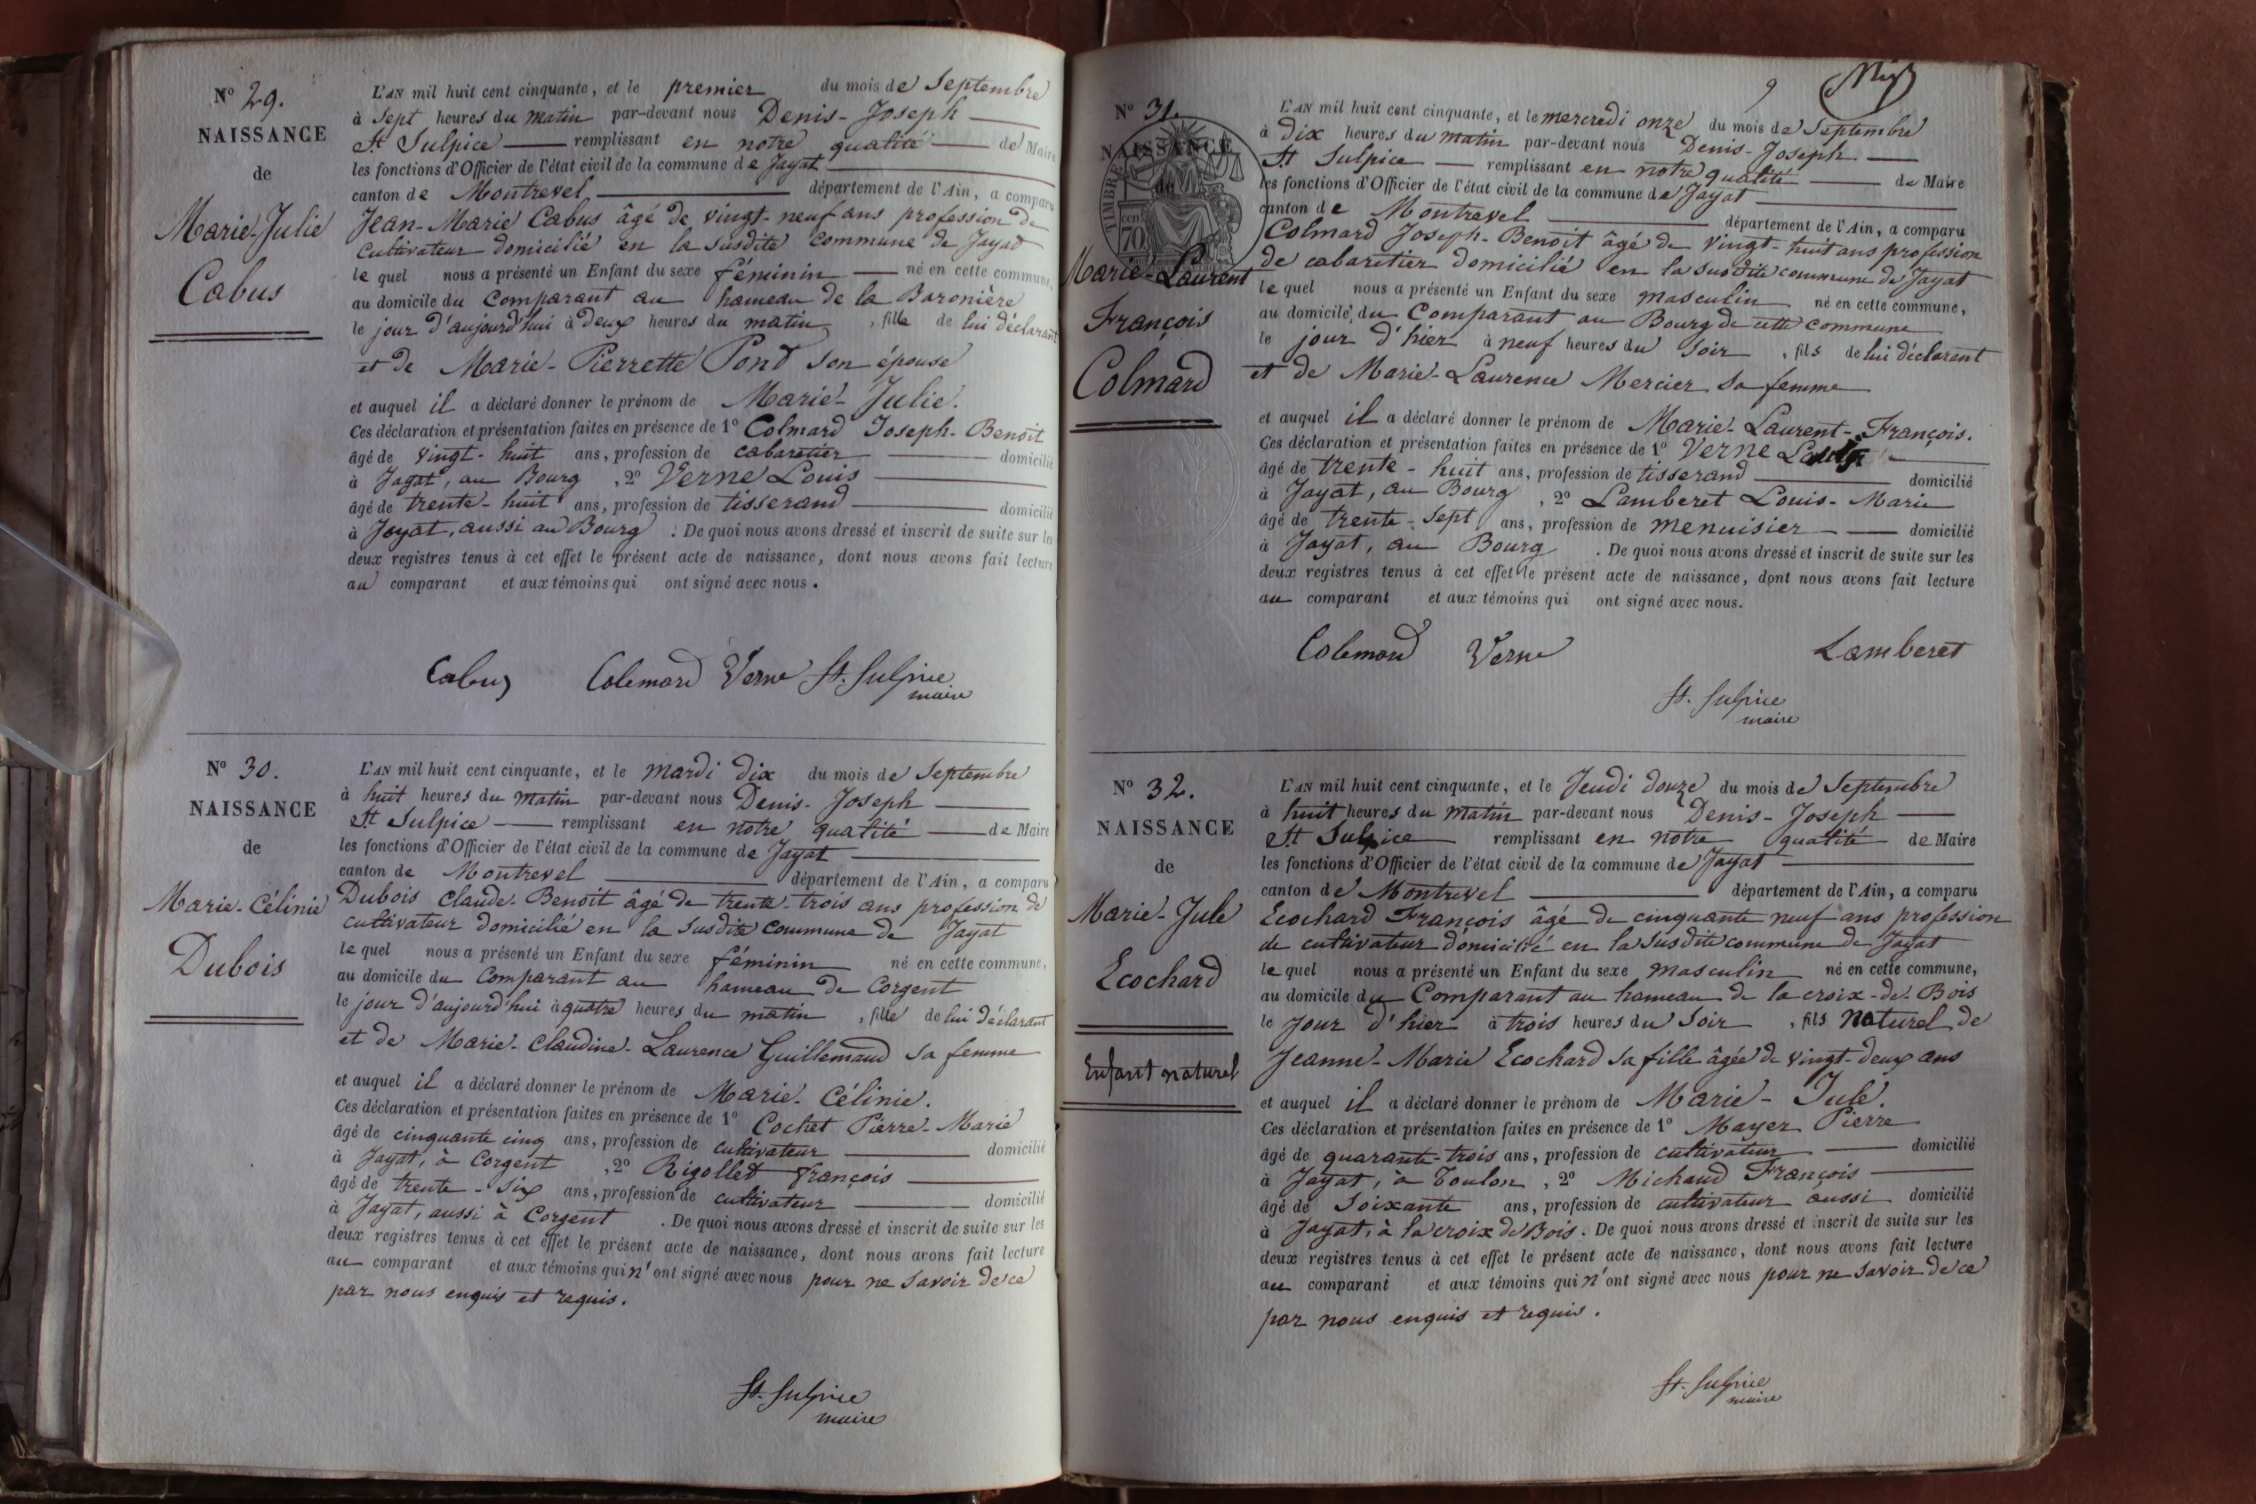 N° 29.
NAISSANCE
de
Marie-Julie
Cabus
L'AN mil huit cent cinquante, et le premier du mois de Septembre
à Sept heures du matin par-devant nous Denis-Joseph
St Sulpice remplissant en notre qualité de Maire
les fonctions d'Officier de l'état civil de la commune de Jayat
canton de Montrevel département de l'Ain, a comparu
Jean-Marie Cabus âgé de vingt-neuf ans profession de
cultivateur domicilié en la susdite commune de Jayat
le quel nous a présenté un Enfant du sexe féminin né en cette commune,
au domicile du Comparant au hameau de la Baronière
le jour d'aujourd'hui à deux heures du matin, fille de lui déclarant
et de Marie-Pierrette Pont son épouse
et auquel il a déclaré donner le prénom de Marie-Julie.
Ces déclaration et présentation faites en présence de 1° Colmard Joseph-Benoît
âgé de vingt-huit ans, profession de cabaretier domicilié
à Jayat, au Bourg, 2° Verne Louis
âgé de trente-huit ans, profession de tisserand domicilié
à Jayat, aussi au Bourg : De quoi nous avons dressé et inscrit de suite sur les
deux registres tenus à cet effet le présent acte de naissance, dont nous avons fait lecture
au comparant et aux témoins qui ont signé avec nous.
Cabus Colemard Verne St. Sulpice
maire
N° 30.
NAISSANCE
de
Marie-Célinie
Dubois
L'AN mil huit cent cinquante, et le mardi dix du mois de Septembre
à huit heures du matin par-devant nous Denis-Joseph
St Sulpice remplissant en notre qualité de Maire
les fonctions d'Officier de l'état civil de la commune de Jayat
canton de Montrevel département de l'Ain, a comparu
Dubois Claude-Benoît âgé de trente-trois ans profession de
cultivateur domicilié en la susdite commune de Jayat
le quel nous a présenté un Enfant du sexe féminin né en cette commune,
au domicile du Comparant au hameau de Corgent
le jour d'aujourd'hui à quatre heures du matin, fille de lui déclarant
et de Marie-Claudine-Laurence Guillemaud sa femme
et auquel il a déclaré donner le prénom de Marie-Célinie.
Ces déclaration et présentation faites en présence de 1° Cochet Pierre-Marie
âgé de cinquante cinq ans, profession de cultivateur domicilié
à Jayat, à Corgent, 2° Rigollet François
âgé de trente-six ans, profession de cultivateur domicilié
à Jayat, aussi à Corgent. De quoi nous avons dressé et inscrit de suite sur les
deux registres tenus à cet effet le présent acte de naissance, dont nous avons fait lecture
au comparant et aux témoins qui n'ont signé avec nous pour ne savoir de ce
par nous enquis et requis.
St. Sulpice
maire
9
N° 31.
NAISSANCE
de
TIMBRE
cen
70
Marie-Laurent
François
Colmard
L'AN mil huit cent cinquante, et le mercredi onze du mois de Septembre
à dix heures du matin par-devant nous Denis-Joseph
St Sulpice remplissant en notre qualité de Maire
les fonctions d'Officier de l'état civil de la commune de Jayat
canton de Montrevel département de l'Ain, a comparu
Colmard Joseph-Benoît âgé de vingt-huit ans profession
de cabaretier domicilié en la susdite commune de Jayat
le quel nous a présenté un Enfant du sexe masculin né en cette commune,
au domicile du Comparant au Bourg de cette commune
le jour d'hier à neuf heures du soir, fils de lui déclarant
et de Marie-Laurence Mercier sa femme
et auquel il a déclaré donner le prénom de Marie-Laurent-François.
Ces déclaration et présentation faites en présence de 1° Verne
âgé de trente-huit ans, profession de tisserand domicilié
à Jayat, au Bourg, 2° Lamberet Louis-Marie
âgé de trente-sept ans, profession de menuisier domicilié
à Jayat, au Bourg. De quoi nous avons dressé et inscrit de suite sur les
deux registres tenus à cet effet le présent acte de naissance, dont nous avons fait lecture
au comparant et aux témoins qui ont signé avec nous.
Colemard Verne Lamberet
St. Sulpice
maire
N° 32.
NAISSANCE
de
Marie-Jule
Ecochard
Enfant naturel
L'AN mil huit cent cinquante, et le Jeudi douze du mois de Septembre
à huit heures du matin par-devant nous Denis-Joseph
St Sulpice remplissant en notre qualité de Maire
les fonctions d'Officier de l'état civil de la commune de Jayat
canton de Montrevel département de l'Ain, a comparu
Ecochard François âgé de cinquante neuf ans profession
de cultivateur domicilié en la susdite commune de Jayat
le quel nous a présenté un Enfant du sexe masculin né en cette commune,
au domicile du Comparant au hameau de la croix-de-Bois
le Jour d'hier à trois heures du soir, fils naturel de
Jeanne-Marie Ecochard sa fille âgée de vingt-deux ans
et auquel il a déclaré donner le prénom de Marie-Jule.
Ces déclaration et présentation faites en présence de 1° Mayer Pierre
âgé de quarante-trois ans, profession de cultivateur domicilié
à Jayat, à Toulon, 2° Michaud François
âgé de Soixante ans, profession de cultivateur aussi domicilié
à Jayat, à la croix de Bois. De quoi nous avons dressé et inscrit de suite sur les
deux registres tenus à cet effet le présent acte de naissance, dont nous avons fait lecture
au comparant et aux témoins qui n'ont signé avec nous pour ne savoir de ce
par nous enquis et requis.
St. Sulpice
maire